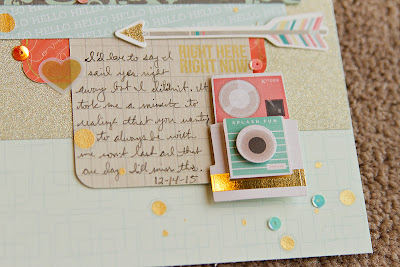 HELLO HELLO HELLO HELLO HELLO
RIGHT HERE
RIGHT NOW
I'd love to say I
said yes right
away but I didn't. It
took me a minute to
realize that you wanting
to always be with
me won't last and that
one day I'll miss this.
12-14-15
SPLASH FUN